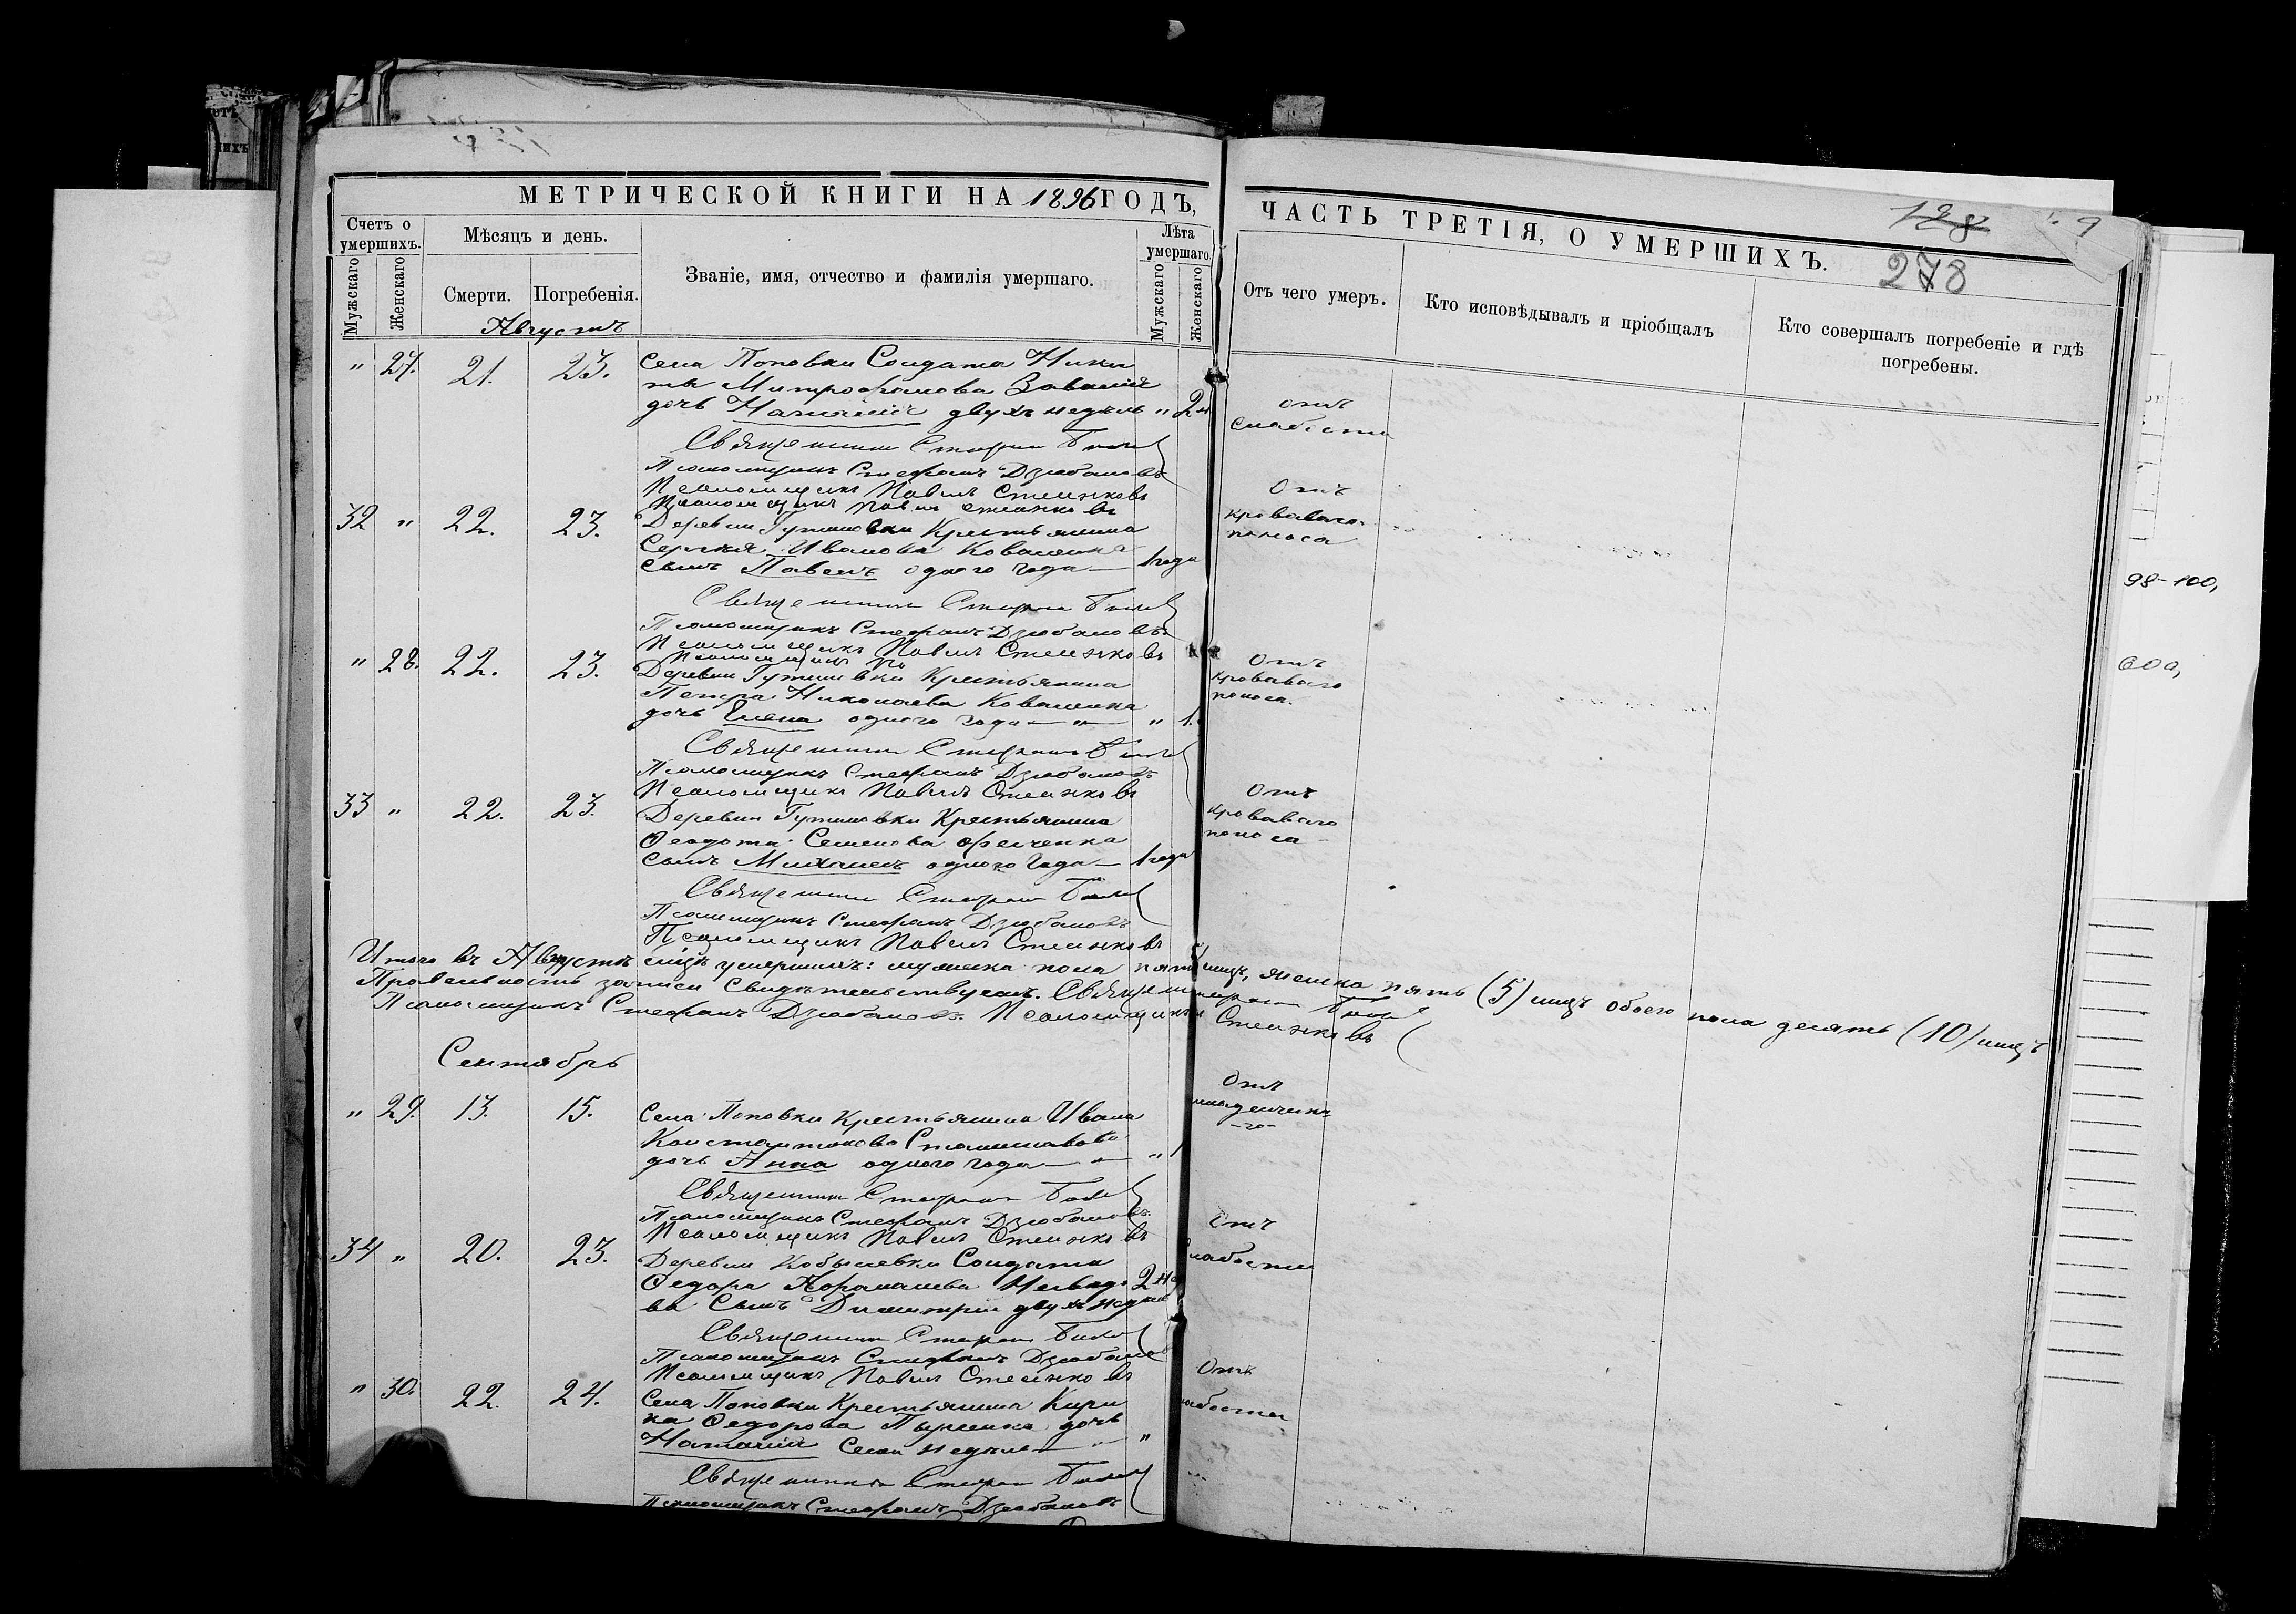 МЕТРИЧЕСКОЙ КНИГИ НА 1896 ГОДЪ,
ЧАСТЬ ТРЕТІЯ, О УМЕРШИХЪ.
128
278
Счетъ о умершихъ.
Мужскаго
Женскаго
Мѣсяцъ и день.
Смерти.
Погребенія.
Званіе, имя, отчество и фамилія умершаго.
Лѣта умершаго.
Мужскаго
Женскаго
Отъ чего умеръ.
Кто исповѣдывалъ и пріобщалъ
Кто совершалъ погребеніе и гдѣ
погребены.
Августъ
" 27. 21. 23. Села Поповки Солдата Ники
ты Митрофанова
дочь Наталія двухъ недѣль " 2 н
отъ
слабости
Священникъ Стефанъ
Псаломщикъ Стефанъ Дзюбановъ
Псаломщикъ Павелъ Стеинковъ
32 " 22. 23. Деревни Гутиновки Крестьянина
Сергѣя Иванова Коваленка
сынъ Павелъ одного года — 1 года
Отъ
кроваваго
поноса
Священникъ Стефанъ
Псаломщикъ Стефанъ Дзюбановъ
Псаломщикъ Павелъ Стеинковъ
" 28. 22. 23. Крестьянина
Петра Николаева Коваленка
дочь Елена одного года — " — " 1.
Отъ
кроваваго
поноса.
Священникъ Стефанъ
Псаломщикъ Стефанъ Дзюбановъ
Псаломщикъ Павелъ Стеинковъ
33 " 22. 23. Деревни Гутиновки Крестьянина
Ѳеодота Семенова
сынъ Михаилъ одного года — 1 года
Отъ
кроваваго
поноса
Священникъ Стефанъ
Псаломщикъ Стефанъ Дзюбановъ
Псаломщикъ Павелъ Стеинковъ
Итого въ Августѣ умершихъ: мужеска пола пять лицъ, женска пять (5) лицъ обоего пола десять (10) лицъ
Правильность записи свидѣтельствуемъ. Священникъ Стефанъ
Псаломщикъ Стефанъ Дзюбановъ. Псаломщикъ Стеинковъ
Сентябрь
" 29. 13. 15. Села Поповки Крестьянина Ивана
Константинова
дочь Анна одного года — " 1
Отъ
младенческа
-го-
Священникъ Стефанъ
Псаломщикъ Стефанъ Дзюбановъ
Псаломщикъ Павелъ Стеинковъ
34 " 20. 23. Деревни Кобылевки Солдата
Ѳедора
ва сынъ Димитрій двухъ недѣль 2 н
отъ
слабости
Священникъ Стефанъ
Псаломщикъ Стефанъ Дзюбановъ
Псаломщикъ Павелъ Стеинковъ
" 30. 22. 24. Села Поповки Крестьянина Кири
ка Ѳедорова дочь
Наталія семи недѣль — "
Отъ
слабости
Священникъ Стефанъ
Псаломщикъ Стефанъ Дзюбановъ
98-100,